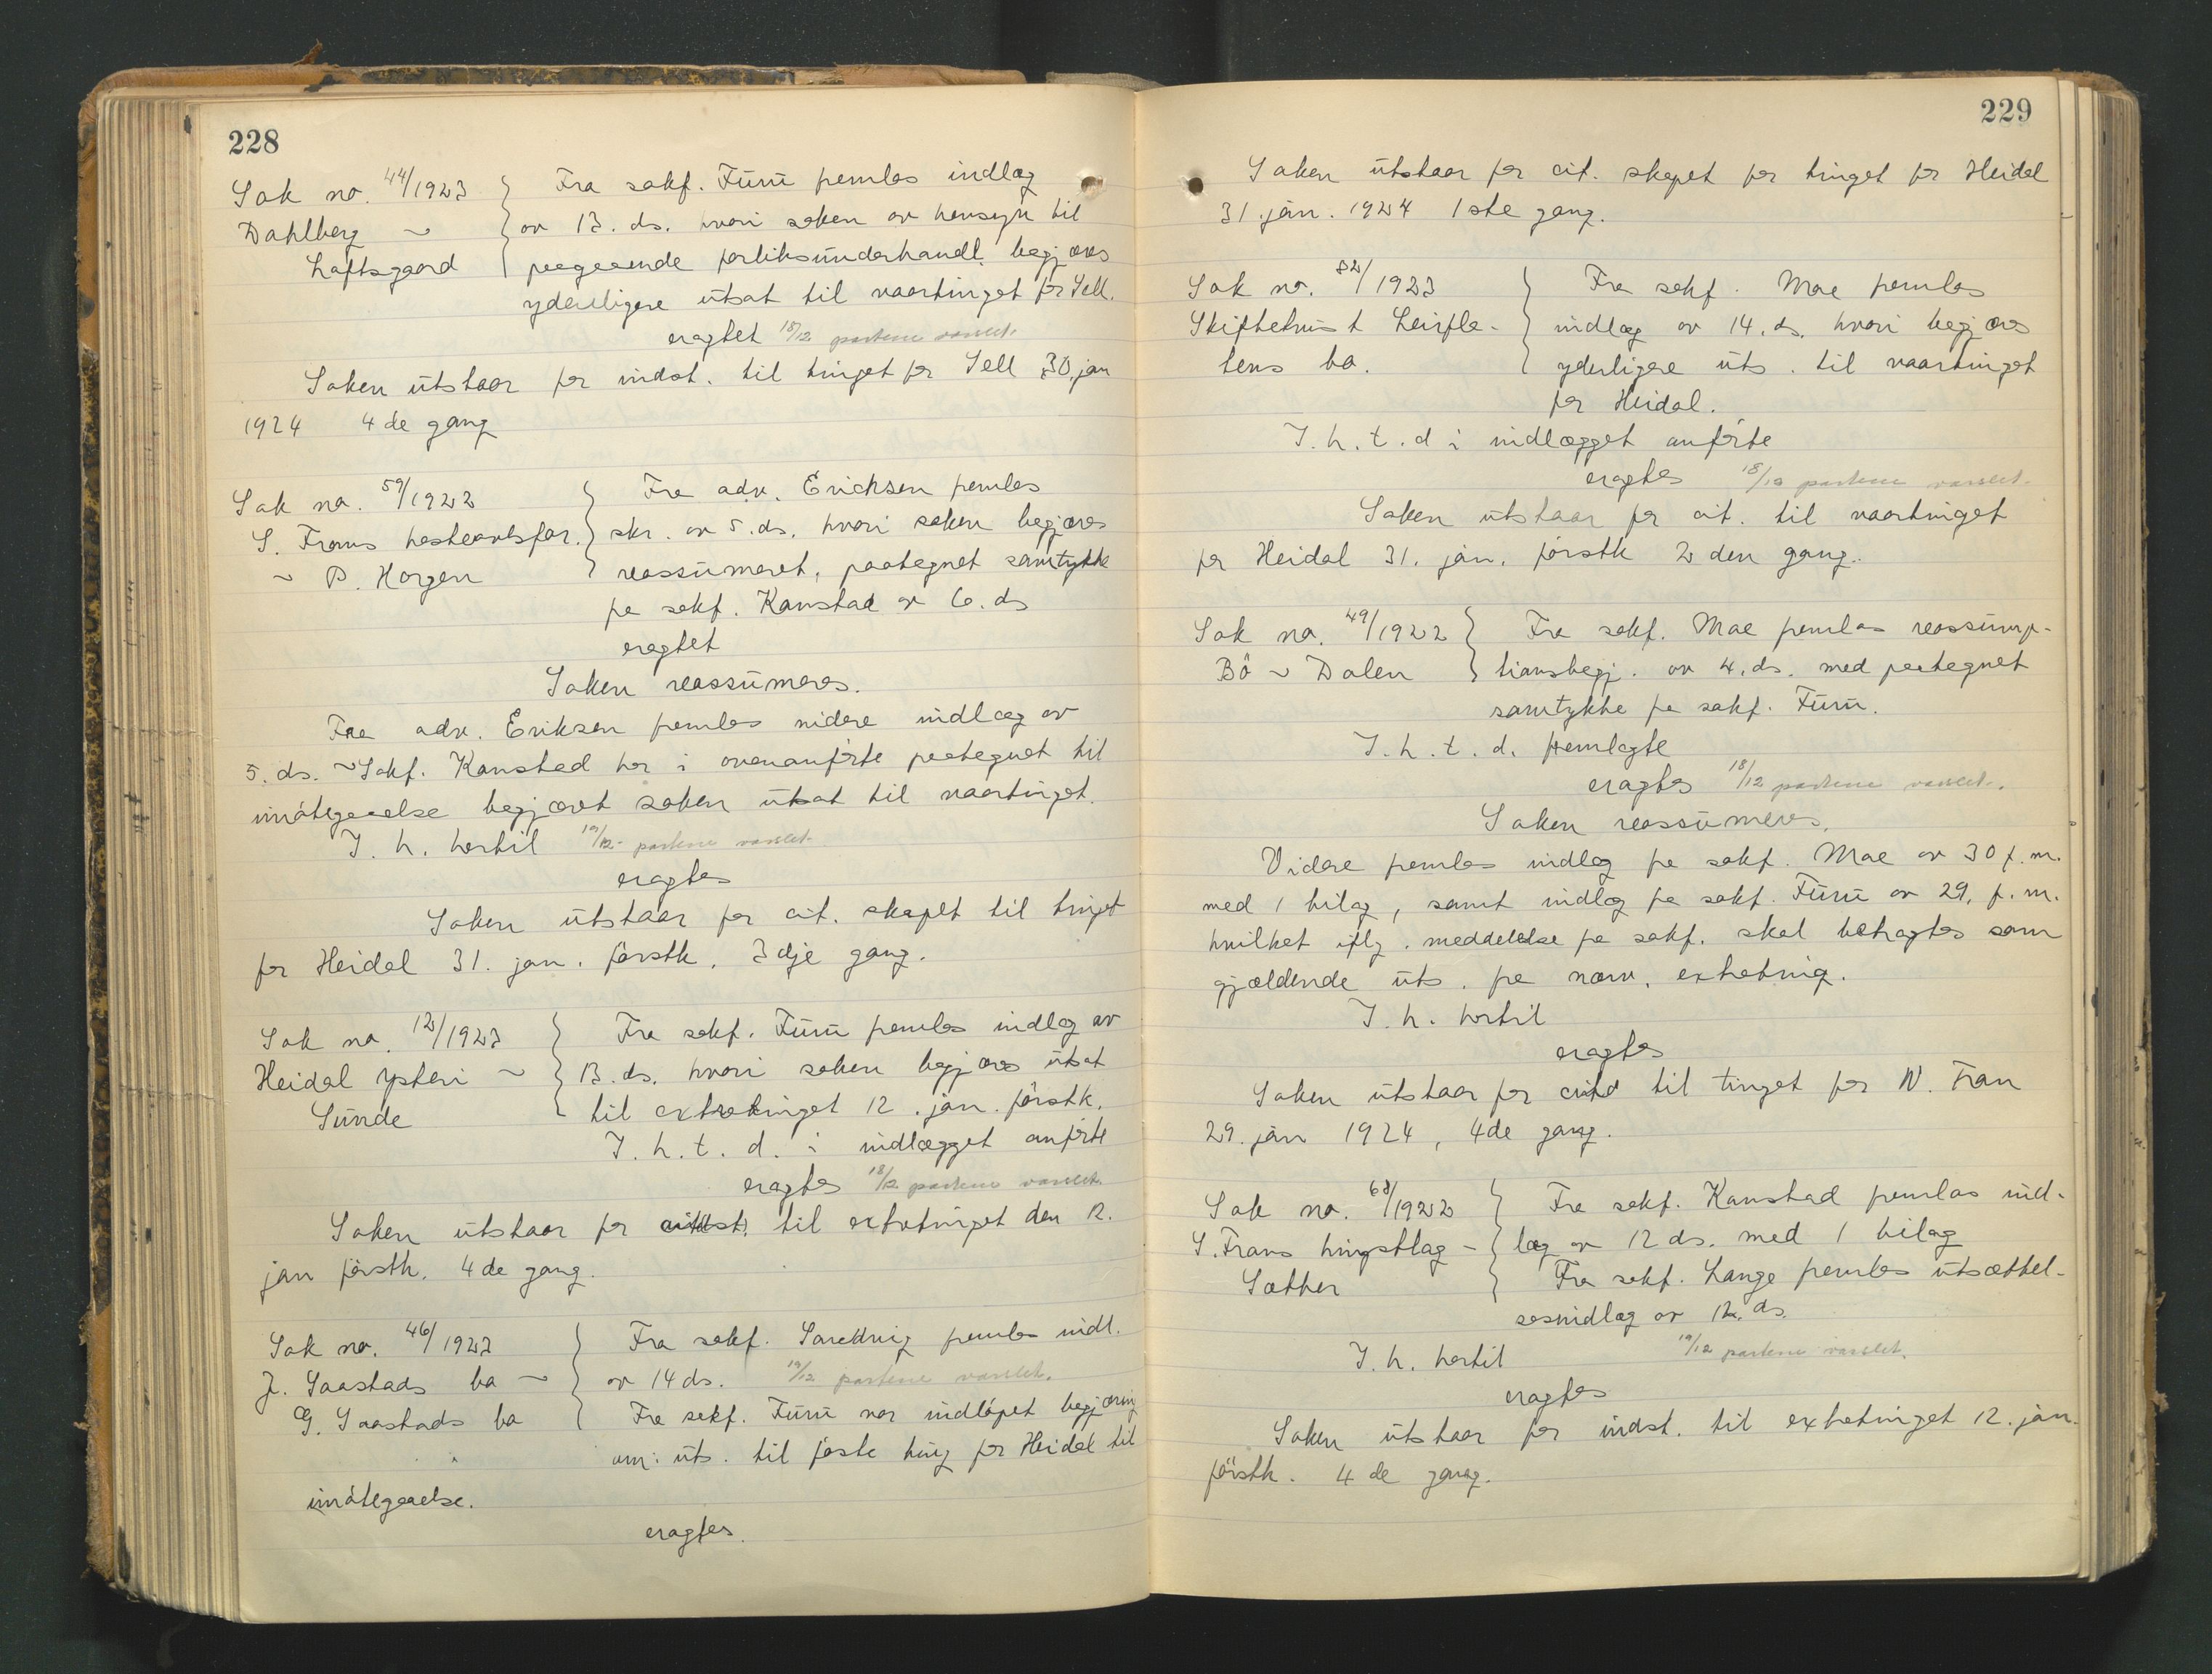 228
Sak no. 44/1923 } Fra sakf. Furu fremlas indlæg
Dahlberg ~ } av 13. ds. hvori saken av hensyn til
Loftsgaard } paagaaende forliksunderhandl. begjæres
yderlligere utsat til vaartinget for Sell.
eragtet 18/12 partene varslet.
Saken utstaar for indst. til tinget for Sell 30. jan
1924 4de gang
Sak no. 59/1922 } Fra adv. Erichsen fremlas
S. Frons hesteavlsfor. } skr. av 5. ds. hvori saken begjæres
~ P. Horgen } reassumeret, paategnet samtykke
fra sakf. Kanstad av 6. ds
eragtet
Saken reassumeres.
Fra adv. Eriksen fremlas videre indlæg av
5. ds. ~ Sakf. Kanstad har i ovenanførte paategnet til
imøtegaaelse begjæret saken utsat til vaartinget.
I. h. hertil 19/12 partene varslet.
eragtes
Saken utstaar for cit. skapet til tinget
for Heidal 31. jan. førstk. 3dje gang.
Sak no. 12/1923 } Fra sakf. Furu fremlas indlæg av
Heidal Ysteri ~ } 13. ds. hvori saken begjæres utsat
Sunde } til extratinget 12. jan. førstk.
I. h. t. d. i indlægget anførte
eragtes 18/12 partene varslet.
Saken utstaar for til extratinget den 12.
jan førstk. 4de gang.
Sak no. 46/1923 } Fra sakf. fremlas indl.
J. Saastads bo ~ } av 14 ds. 19/12 partene varslet.
G. Saastads bo } Fra sakf. Furu var indløpet begjæring
om uts. til første ting for Heidal til
imøtegaaelse.
eragtes.
229
Saken utstaar for cit. skapet for tinget for Heidal
31. jan. 1924 1ste gang.
Sak no. 82/1923 } Fra sakf. Moe fremlas
Skiftetvist Leirfle- } indlæg av 14. ds. hvori begjæres
tens bo. } yderligere uts. til vaartinget
for Heidal.
I. h. t. d i indlægget anførte
eragtes 18/12 partene varslet.
Saken utstaar for cit. til vaartinget
for Heidal 31. jan. førstk 2den gang.
Sak no. 49/1922 } Fra sakf. Moe fremlas reassump-
Bö ~ Dalen } tionsbegj. av 4. ds. med paategnet
samtykke fra sakf. Furu.
I. h. t. d. fremlagte
eragtes 18/12 partene varslet.
Saken reassumeres.
Videre fremlas indlæg fra sakf. Moe av 30 f. m.
med 1 bilag, samt indlæg fra sakf. Furu av 29. f. m.
hvilket iflg. meddelelse fra sakf. skal betragtes som
gjældende uts. fra nærv. extrating.
I. h. hertil
eragtes
Saken utstaar for til tinget for N. Fron
29. jan 1924, 4de gang.
Sak no. 68/1922 } Fra sakf. Kanstad fremlas ind-
S. Frons hingstlag - } læg av 12 ds. med 1 bilag
Sæther } Fra sakf. Lange fremlas utsættel-
sesindlæg av 12. ds.
I. h. hertil 19/12 partene varslet.
eragtes
Saken utstaar for indst. til extratinget 12. jan.
førstk. 4de gang.